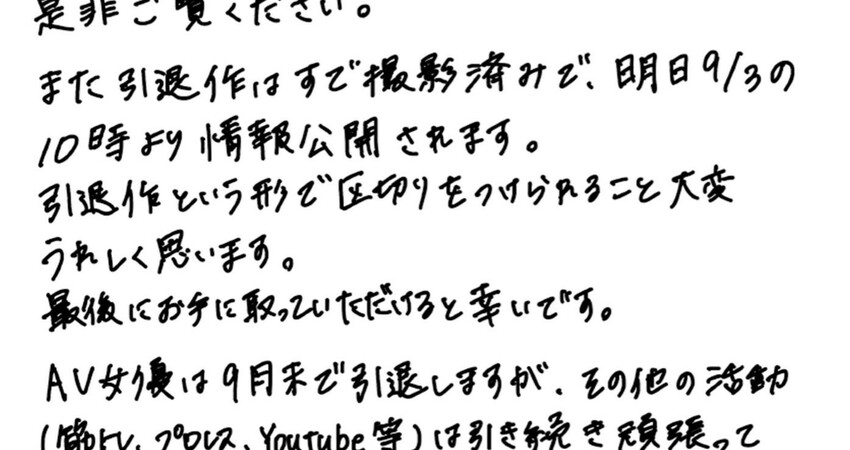 是非ご覧ください。
また引退作はすで撮影済みで、明日9/3の
10時より情報公開されます。
引退作という形で区切りをつけられること大変
うれしく思います。
最後にお手に取っていただけると幸いです。
AV女優は9月末で引退しますが、その他の活動
(筋トレ、プロレス、Youtube等)は引き続き頑張って